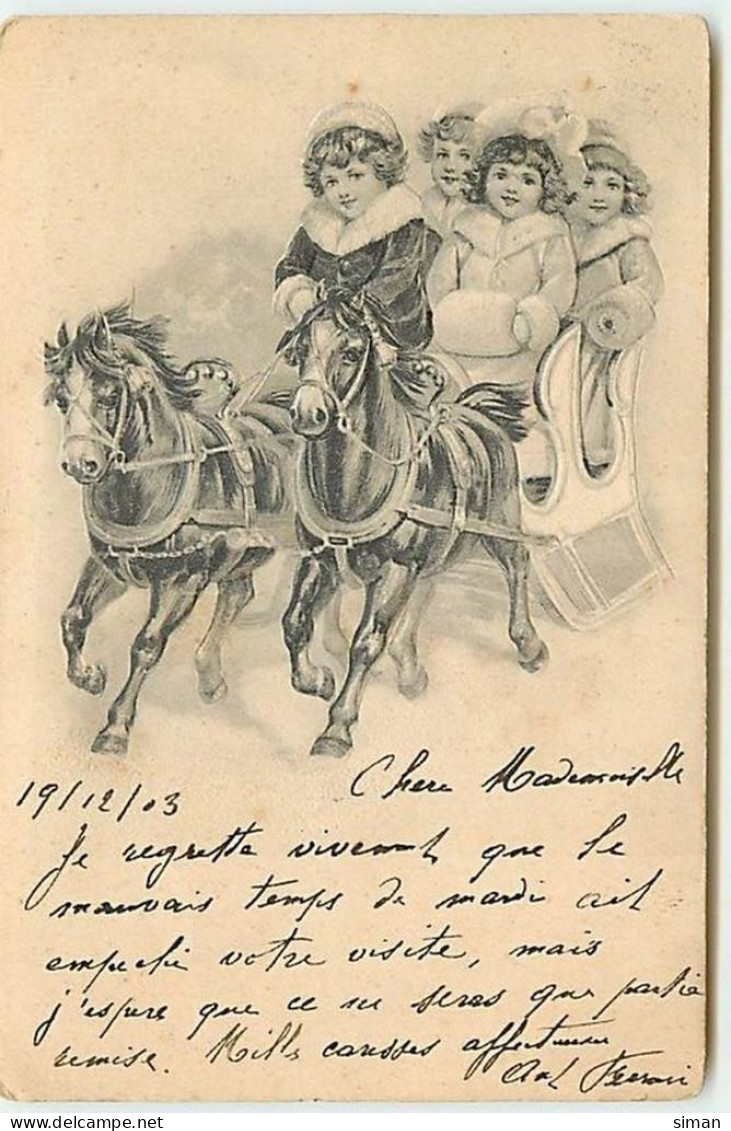 19/12/03
Chere Mademoiselle
Je regrette vivement que le
mauvais temps de mardi ait
empeché votre visite, mais
j'espere que ce ne seras que partie
remise. Mille caresses affectueuses
siman